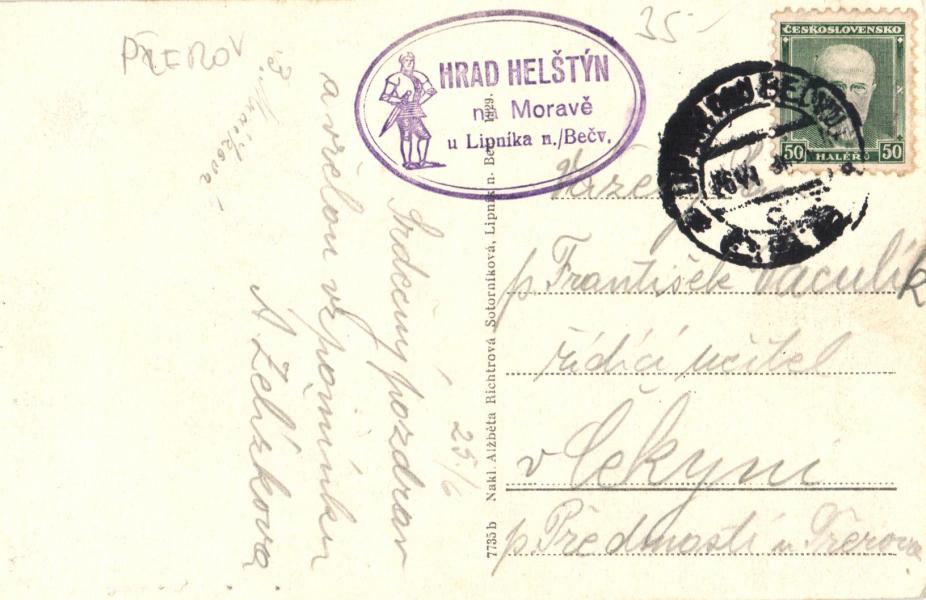 PŘEROV
35-
HRAD HELŠTÝN
na Moravě
u Lipníka n./Bečv.
ČESKOSLOVENSKO
50 HALÉŘŮ 50
Srdečný pozdrav
a vřelou vzpomínku
A Želízkova
25/6
7735 b Nakl. Alžběta Richtrová Sotorníková, Lipník n. Beč. 1929.
p. František Vaculík
řídící učitel
v Čekyni
p. Předmostí u Přerova